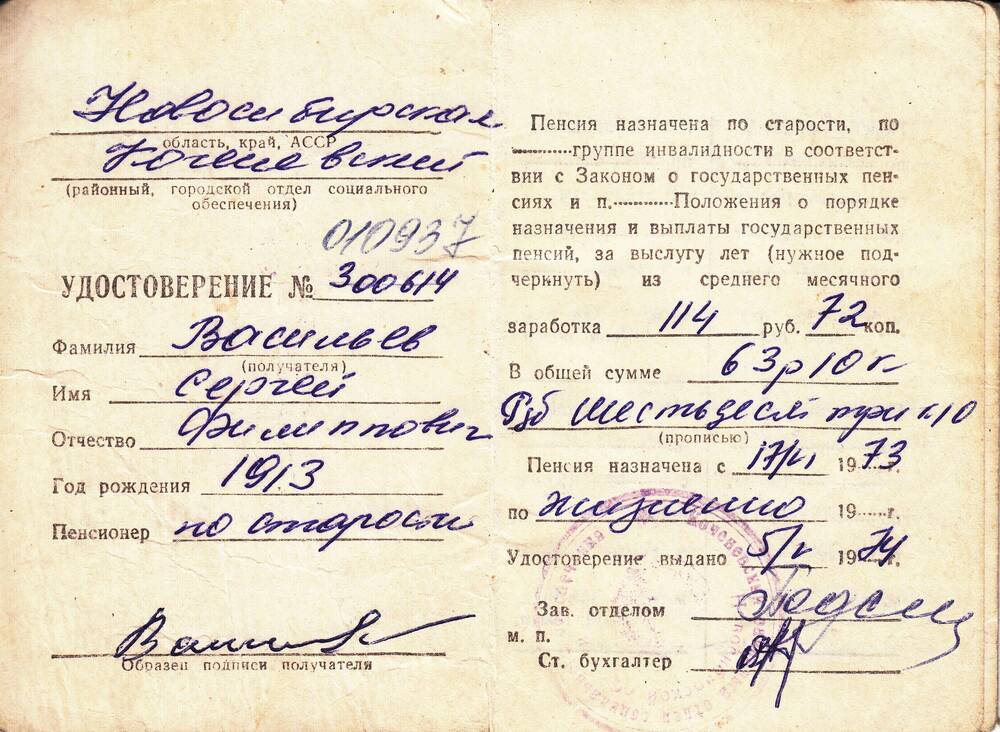 Новосибирская
область, край, АССР
Коченевский
(районный, городской отдел социального
обеспечения)
010937
УДОСТОВЕРЕНИЕ № 300614
Фамилия Васильев
(получателя)
Имя Сергей
Отчество Филиппович
Год рождения 1913
Пенсионер по старости
Образец подписи получателя
Пенсия назначена по старости, по
группе инвалидности в соответст-
вии с Законом о государственных пен-
сиях и п. Положения о порядке
назначения и выплаты государственных
пенсий, за выслугу лет (нужное под-
черкнуть) из среднего месячного
заработка 114 руб. 72 коп.
В общей сумме 63р 10к
Руб шестьдесят три к10
(прописью)
Пенсия назначена с 17/VI 1973 г.
по жизненно 19 г.
Удостоверение выдано 5/V 1974 г.
Зав. отделом
м. п.
Ст. бухгалтер